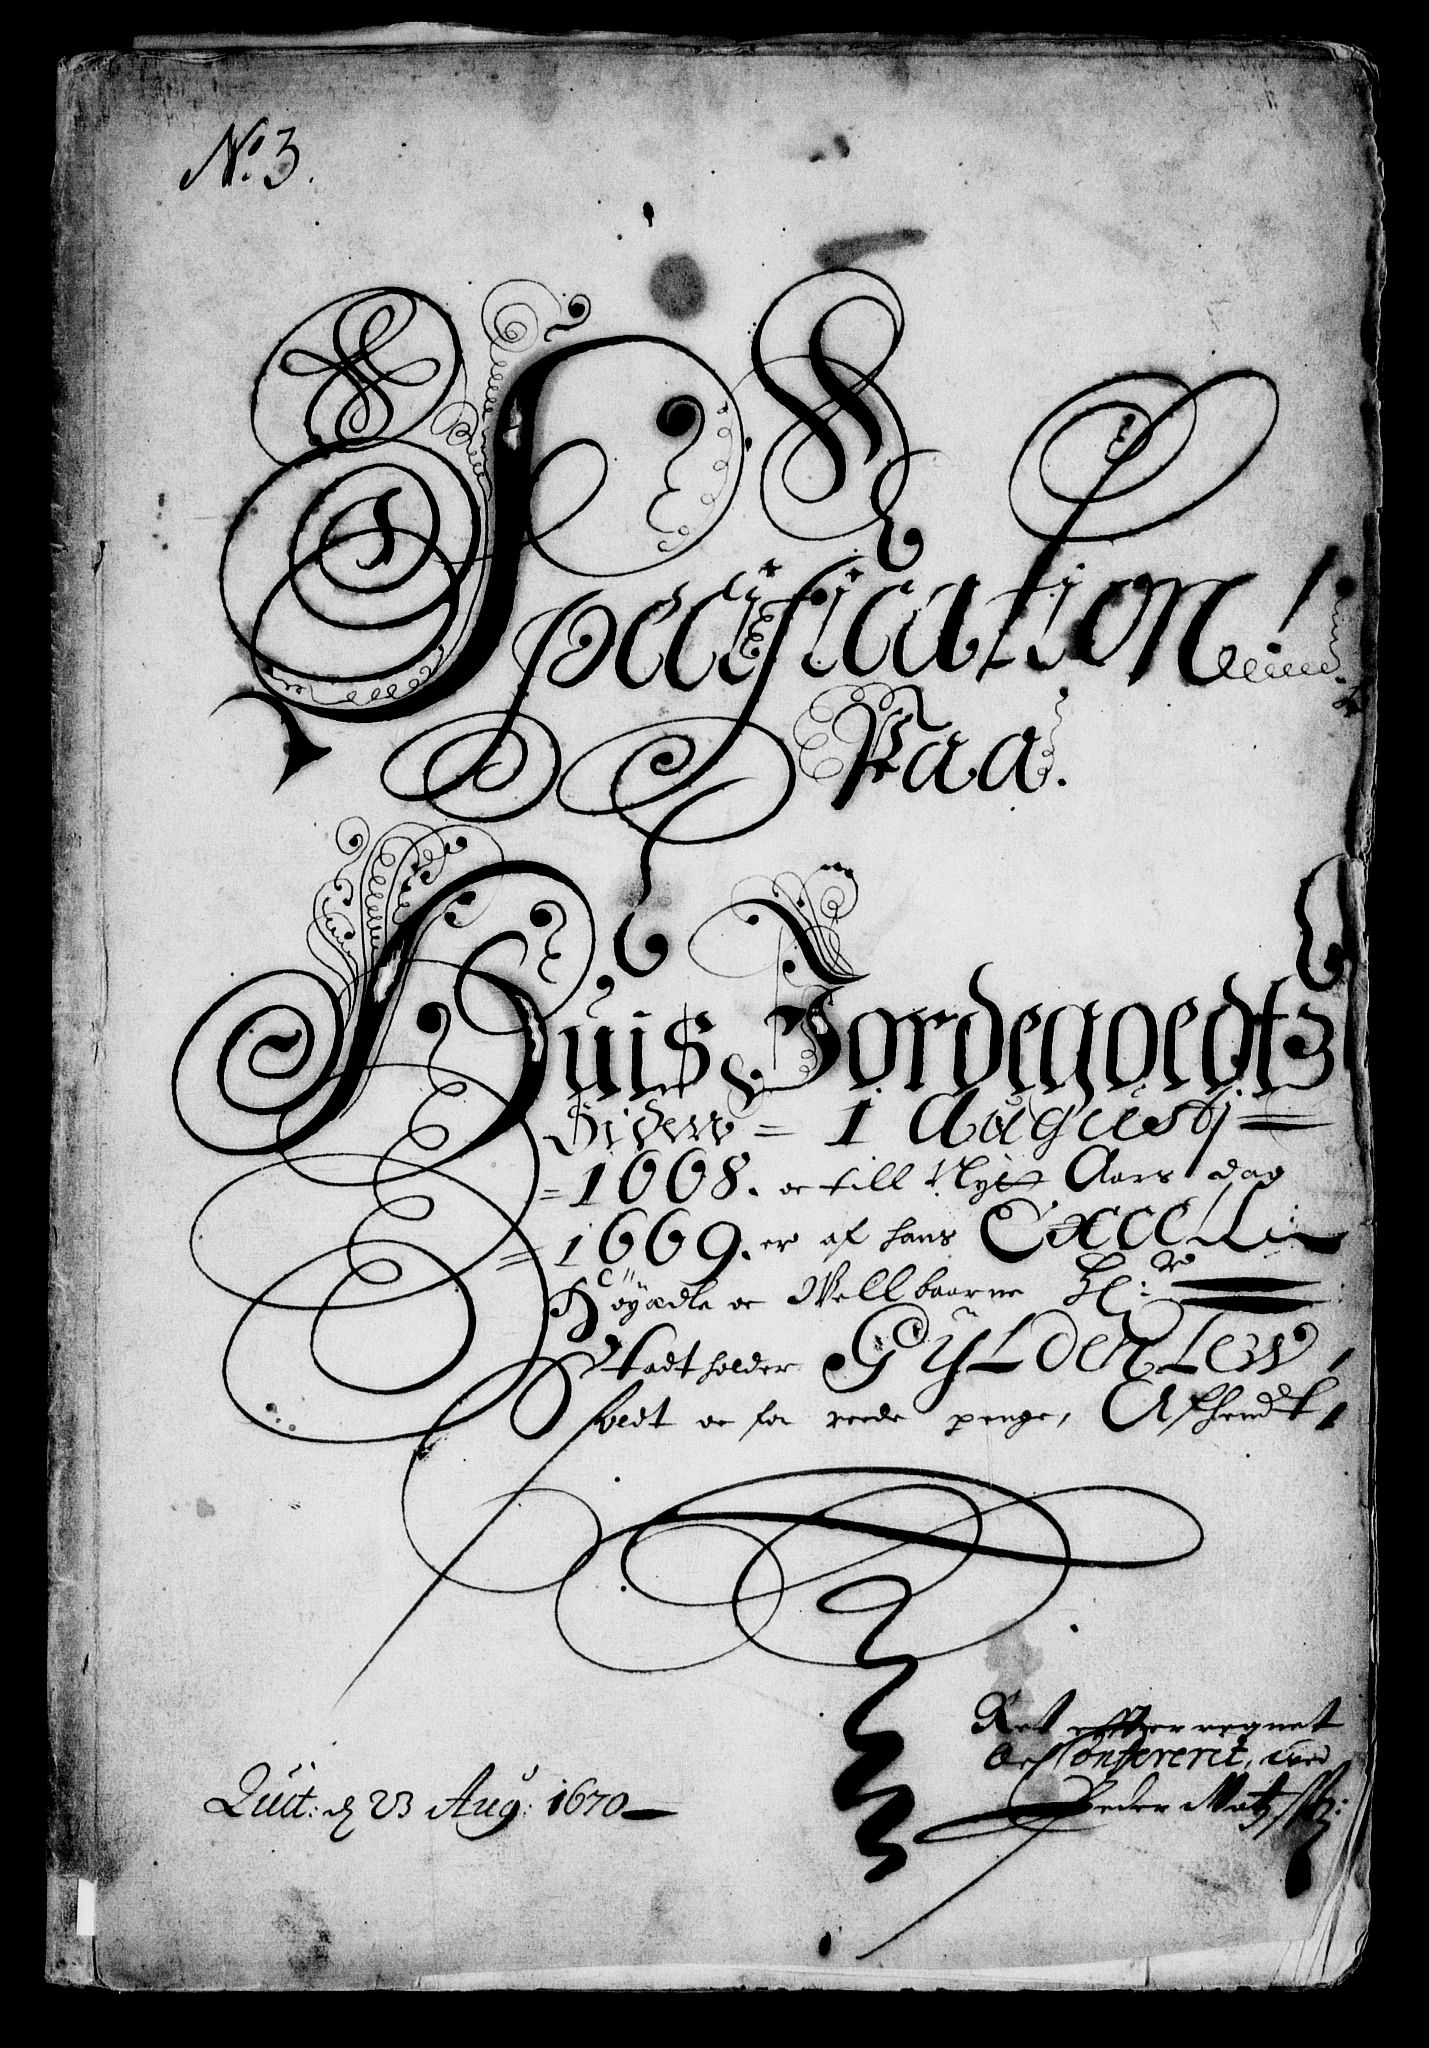 No. 3.
Specification!
Paa.
Huis Jordegoedtz
Siden = 1 Augustj =
= 1668. oc till Nytt Aars dag
= 1669. er af hans Excelli
Höyædle oc Wellbaarne Hr:
Stadtholder Gyldenlew
soldt oc for reede penge, Afhendt,
Ret efterregnet
oc Confererit, ved
Peder Matzss:
Quit: d 23 Aug: 1670